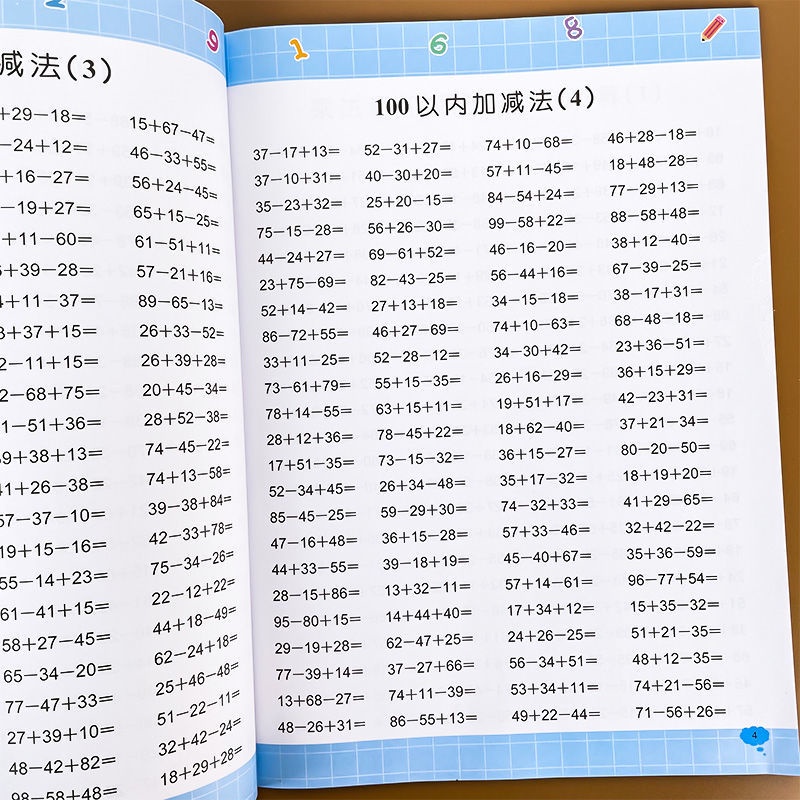 2
9
减法(3)
+29−18= 15+67−47=
−24+12= 46−33+55=
+16−27= 56+24−45=
−19+27= 65+15−25=
+11−60= 61−51+11=
+39−28= 57−21+16=
+11−37= 89−65−13=
+37+15= 26+33−52=
2−11+15= 26+39+28=
2−68+75= 20+45−34=
1−51+36= 28+52−38=
+38+13= 74−45−22=
41+26−38= 74+13−58=
57−37−10= 39−38+84=
19+15−16= 42−33+78=
55−14+23= 75−34−26=
61−41+15= 22−12+22=
58+27−45= 44+18−49=
65−34−20= 62−24+18=
77−47+33= 25+46−48=
27+39+10= 51−22−11=
48−42+82= 32+42−24=
98−58+48= 18+29+28=
1 6 8
100以内加减法(4)
37−17+13= 52−31+27= 74+10−68= 46+28−18=
37−10+31= 40−30+20= 57+11−45= 18+48−28=
35−23+32= 25+20−15= 84−54+24= 77−29+13=
75−15−28= 56+26−30= 99−58+22= 88−58+48=
44−24+27= 69−61+52= 46−16−20= 38+12−40=
23+75−69= 82−43−25= 56−44+16= 67−39−25=
52+14−42= 27+13+18= 34−15−18= 38−17+31=
86−72+55= 46+27−69= 74+10−63= 68−48−18=
33+11−25= 52−28−12= 34−30+42= 23+36−51=
73−61+79= 55+15−35= 26+16−29= 36+15+29=
78+14−55= 63+15+11= 19+51+17= 42−23+31=
28+12+36= 78−45+22= 18+62−40= 37+21−34=
17+51−35= 73−15−32= 36+15−27= 80−20−50=
52−34+45= 26+34−48= 35+17−32= 18+19+20=
85−45−25= 59−29+30= 74−32+33= 41+29−65=
47−16+48= 36+15−28= 57+33−46= 32+42−22=
44+33−55= 39−18+19= 45−40+67= 35+36−59=
28−15+86= 13+32−11= 57+14−61= 96−77+54=
95−80+15= 14+44+40= 17+34+12= 15+35−32=
29−19+28= 62−47+25= 24+26−25= 51+21−35=
77−39+14= 37−27+66= 56−34+51= 48+12−35=
13+68−27= 74+11−39= 53+34+11= 74+21−56=
48−26+31= 86−55+13= 49+22−44= 71−56+26=
4